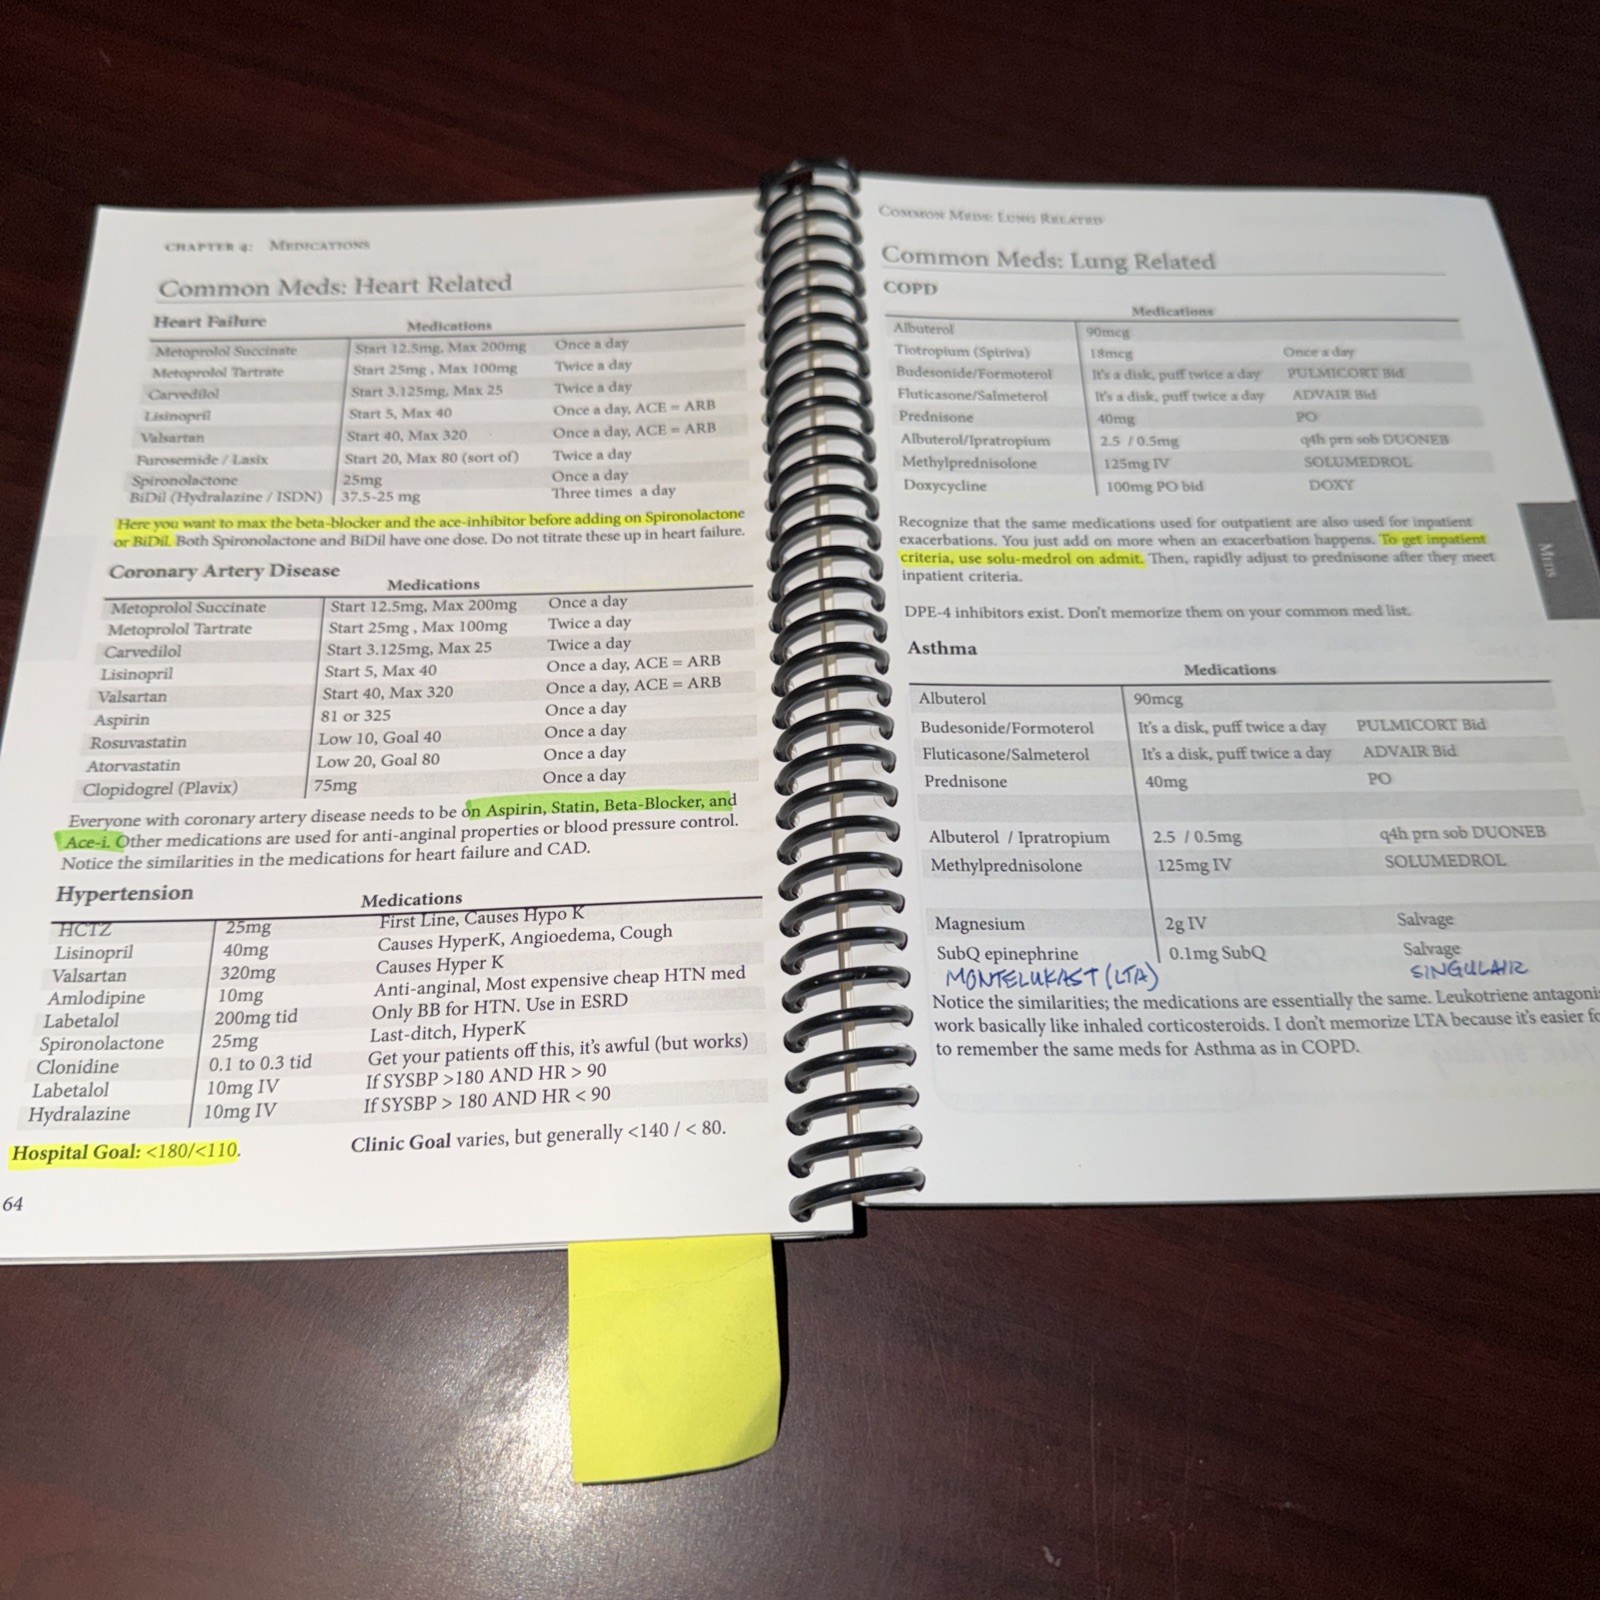 CHAPTER 4: MEDICATIONS
Common Meds: Heart Related
Heart Failure
Medications
Metoprolol Succinate Start 12.5mg, Max 200mg Once a day
Metoprolol Tartrate Start 25mg , Max 100mg Twice a day
Carvedilol Start 3.125mg, Max 25 Twice a day
Lisinopril Start 5, Max 40 Once a day, ACE = ARB
Valsartan Start 40, Max 320 Once a day, ACE = ARB
Furosemide / Lasix Start 20, Max 80 (sort of) Twice a day
Spironolactone 25mg Once a day
BiDil (Hydralazine / ISDN) 37.5-25 mg Three times a day
Here you want to max the beta-blocker and the ace-inhibitor before adding on Spironolactone
or BiDil. Both Spironolactone and BiDil have one dose. Do not titrate these up in heart failure.
Coronary Artery Disease
Medications
Metoprolol Succinate Start 12.5mg, Max 200mg Once a day
Metoprolol Tartrate Start 25mg , Max 100mg Twice a day
Carvedilol Start 3.125mg, Max 25 Twice a day
Lisinopril Start 5, Max 40 Once a day, ACE = ARB
Valsartan Start 40, Max 320 Once a day, ACE = ARB
Aspirin 81 or 325 Once a day
Rosuvastatin Low 10, Goal 40 Once a day
Atorvastatin Low 20, Goal 80 Once a day
Clopidogrel (Plavix) 75mg Once a day
Everyone with coronary artery disease needs to be on Aspirin, Statin, Beta-Blocker, and
Ace-i. Other medications are used for anti-anginal properties or blood pressure control.
Notice the similarities in the medications for heart failure and CAD.
Hypertension
Medications
HCTZ 25mg First Line, Causes Hypo K
Lisinopril 40mg Causes HyperK, Angioedema, Cough
Valsartan 320mg Causes Hyper K
Amlodipine 10mg Anti-anginal, Most expensive cheap HTN med
Labetalol 200mg tid Only BB for HTN. Use in ESRD
Spironolactone 25mg Last-ditch, HyperK
Clonidine 0.1 to 0.3 tid Get your patients off this, it's awful (but works)
Labetalol 10mg IV If SYSBP >180 AND HR > 90
Hydralazine 10mg IV If SYSBP > 180 AND HR < 90
Hospital Goal: <180/<110. Clinic Goal varies, but generally <140 / < 80.
64
COMMON MEDS: LUNG RELATED
Common Meds: Lung Related
COPD
Medications
Albuterol 90mcg
Tiotropium (Spiriva) 18mcg Once a day
Budesonide/Formoterol It's a disk, puff twice a day PULMICORT Bid
Fluticasone/Salmeterol It's a disk, puff twice a day ADVAIR Bid
Prednisone 40mg PO
Albuterol/Ipratropium 2.5 / 0.5mg q4h prn sob DUONEB
Methylprednisolone 125mg IV SOLUMEDROL
Doxycycline 100mg PO bid DOXY
Recognize that the same medications used for outpatient are also used for inpatient
exacerbations. You just add on more when an exacerbation happens. To get inpatient
criteria, use solu-medrol on admit. Then, rapidly adjust to prednisone after they meet
inpatient criteria.
DPE-4 inhibitors exist. Don't memorize them on your common med list.
Meds
Asthma
Medications
Albuterol 90mcg
Budesonide/Formoterol It's a disk, puff twice a day PULMICORT Bid
Fluticasone/Salmeterol It's a disk, puff twice a day ADVAIR Bid
Prednisone 40mg PO
Albuterol / Ipratropium 2.5 / 0.5mg q4h prn sob DUONEB
Methylprednisolone 125mg IV SOLUMEDROL
Magnesium 2g IV Salvage
SubQ epinephrine 0.1mg SubQ Salvage
MONTELUKAST (LTA) SINGULAIR
Notice the similarities; the medications are essentially the same. Leukotriene antagonis
work basically like inhaled corticosteroids. I don't memorize LTA because it's easier fo
to remember the same meds for Asthma as in COPD.